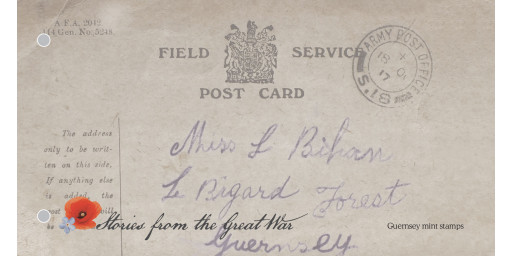 A.F.A. 2042
114 Gen. No. 5248.
FIELD SERVICE
POST CARD
ARMY POST OFFICE
The address
only to be writ-
ten on this side.
If anything else
is added, the
post will
be
Miss L Bihan
Le Bigard Forest
Guernsey
Stories from the Great War
Guernsey mint stamps